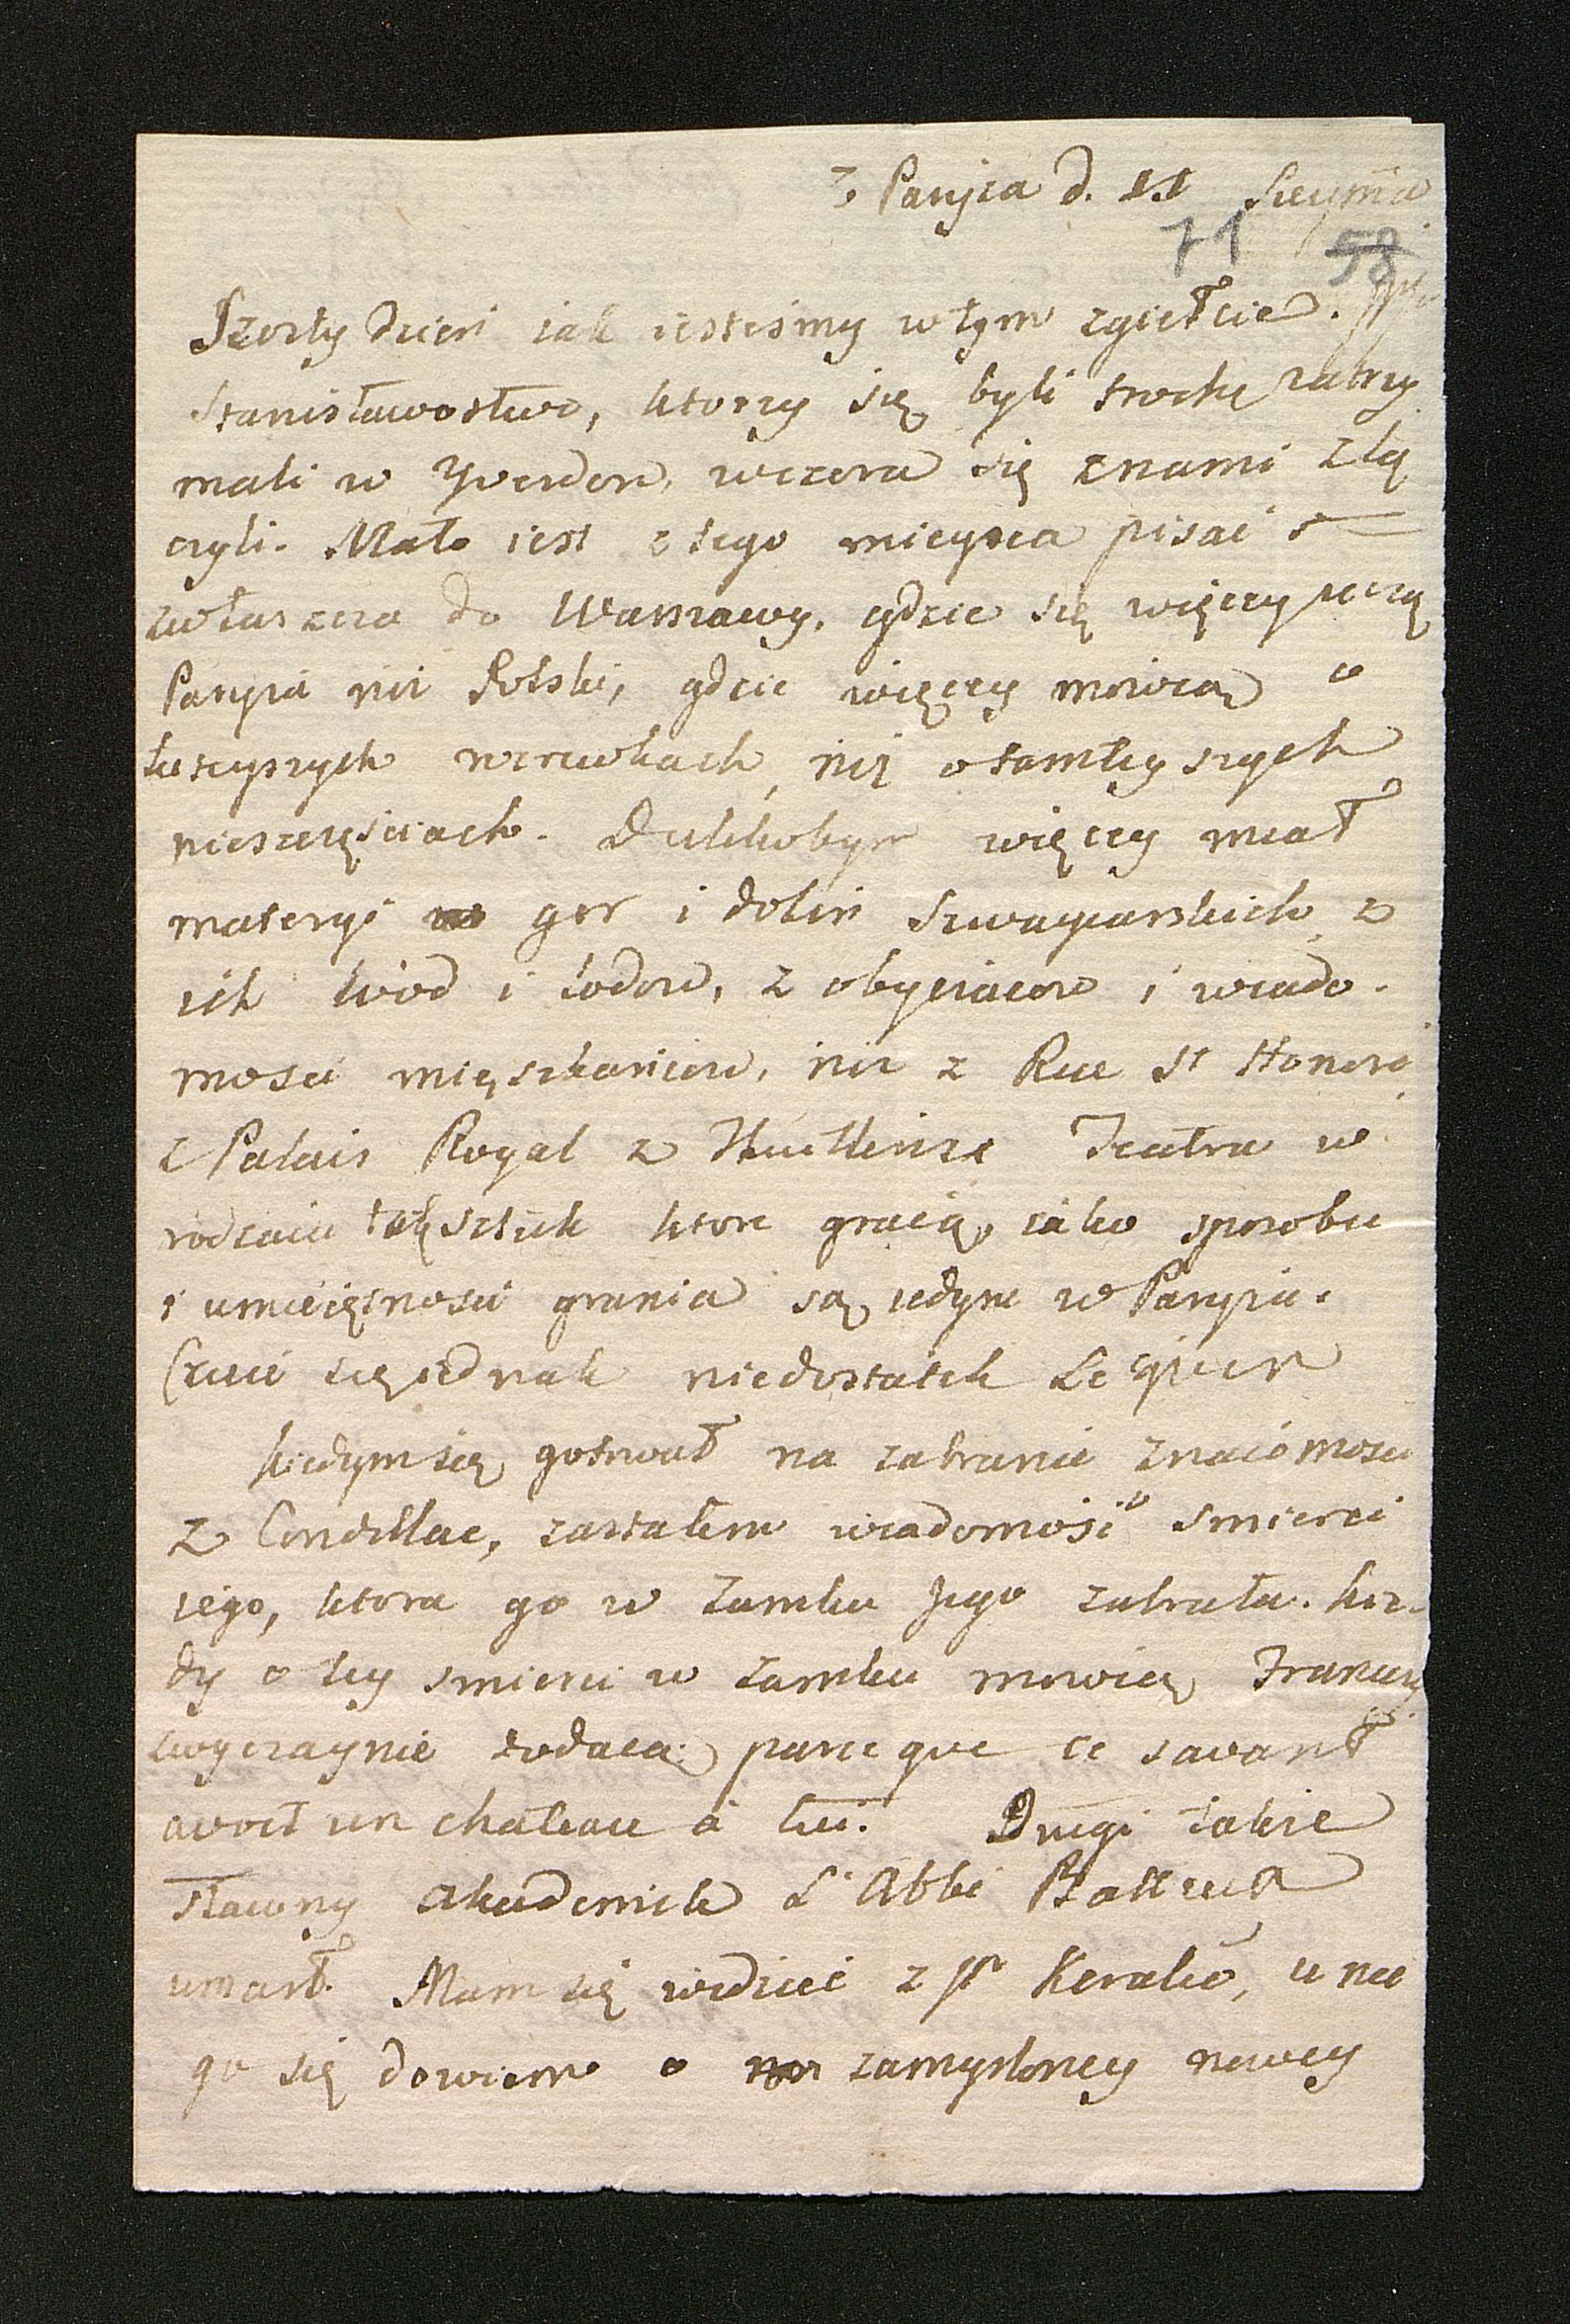 z Paryża d. 11 Sierpnia
71 58
Szosty dzień iak iesteśmy w tym zgiełcie. JPP
Stanisławostwo, ktorzy się byli trochę zatrzy
mali w Yverdon, wczora się z nami złą
czyli. Mało iest z tego mieysca pisać
zwłaszcza do Warszawy, gdzie się więcey uczą
Paryża niż Polski, gdzie więcey mowią o
tuteyszych nierukach, niż o tamteyszych
nieszczęściach. Dalekobym więcey miał
materyi gor i dolin Szwaycarskich, z
ich wód i lodow, z obyczaiow i wiado-
mości mięszkańcow, niż z Rue St Honoré
z Palais Royal z Thuillerize Teatra w
rodzaiu sztuk ktore graią, iako sposobu
i umieiętności grania są iedyne w Paryżu.
Czuć się iednak niedostatek Le Quen
Kiedym się gotował na zabranie znaiomości
z Condillac, zastałem wiadomość o śmierci
iego, ktora go w zamku Jego zabrała. Kie-
dy o tey śmierci w zamku mowią Francuzi
zwyczaynie dodaią: parce que ce savant
avoit un chateau à lui. Drugi także
sławny Akademik L'Abbé Batteux
umarł. Mam się widzieć z JP Keralio, u nie
go się dowiem o zamysloney nowey